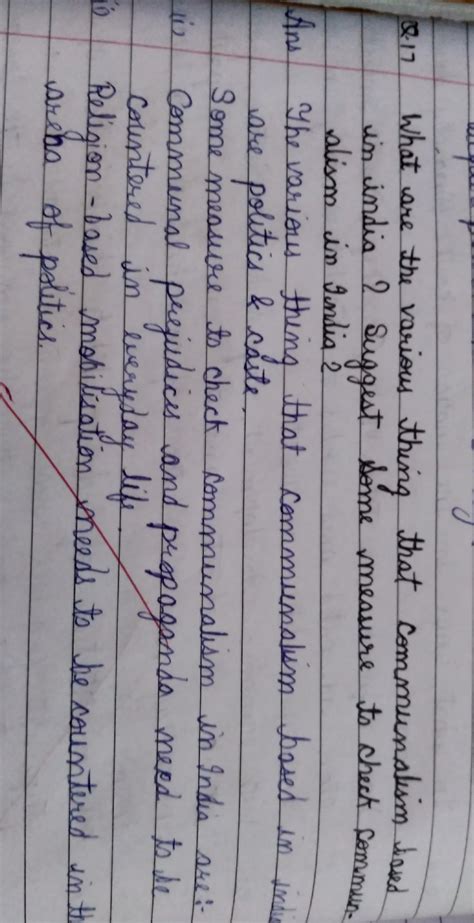 Q.17 What are the various thing that communalism based
in india ? Suggest some measure to check commun-
alism in India ?
Ans The various thing that communalism based in
are politics & caste.
Some measure to check communalism in India are:-
i) Communal prejudices and propaganda need to be
countered in everyday life.
ii) Religion-based mobilisation needs to be countered in
arena of politics.